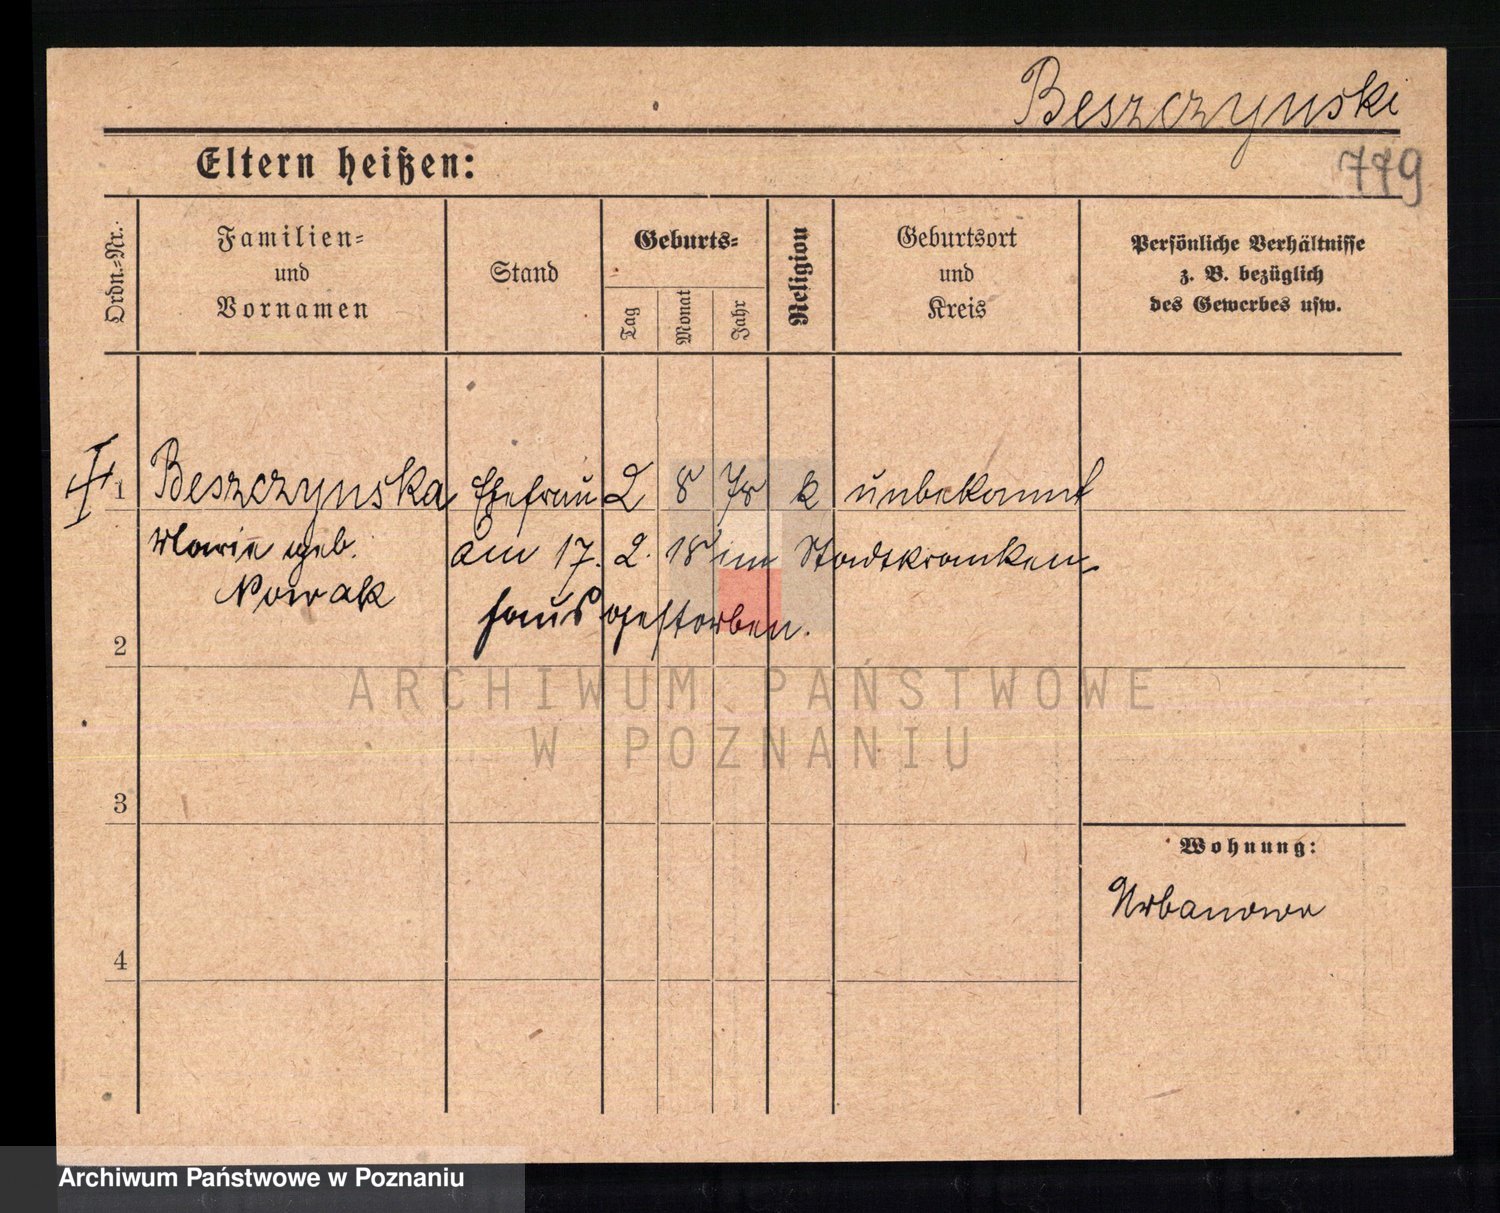 Beszczynski
Eltern heißen:
779
Ordn.-Nr.
Familien-
und
Vornamen
Stand
Geburts-
Tag
Monat
Jahr
Religion
Geburtsort
und
Kreis
Persönliche Verhältnisse
z. B. bezüglich
des Gewerbes usw.
1 Beszczynska Ehefrau 2 8 78 k unbekannt
Marie geb. am 17. 2. 18 im Stadtkranken-
Nowak
haus gestorben.
2
ARCHIWUM PAŃSTWOWE
W POZNANIU
3
Wohnung:
Urbanowo
4
Archiwum Państwowe w Poznaniu